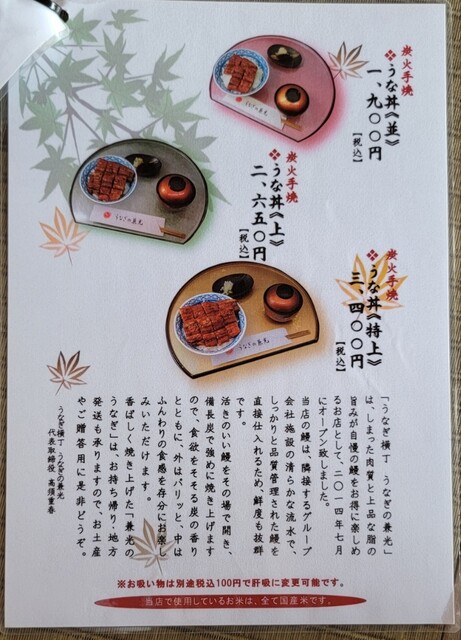 炭火手焼
❖うな丼《並》
一、九〇〇円
【税込】
炭火手焼
❖うな丼《上》
二、六五〇円
【税込】
炭火手焼
❖うな丼《特上》
三、四〇〇円
【税込】
うなぎの兼光
うなぎの兼光
うなぎの兼光
「うなぎ横丁 うなぎの兼光」
は、しまった肉質と上品な脂の
旨みが自慢の鰻をお得に楽しめ
るお店として、二〇一四年七月
にオープン致しました。
当店の鰻は、隣接するグループ
会社施設の清らかな流水で、
しっかりと品質管理された鰻を
直接仕入れるため、鮮度も抜群
です。
活きのいい鰻をその場で開き、
備長炭で強めに焼き上げます
ので、食欲をそそる炭の香り
とともに、外はパリッと、中は
ふんわりの食感を存分にお楽し
みいただけます。
香ばしく焼き上げた「兼光の
うなぎ」は、お持ち帰り・地方
発送も承りますので、お土産
やご贈答用に是非どうぞ。
うなぎ横丁 うなぎの兼光
代表取締役 高須重春
※お吸い物は別途税込100円で肝吸に変更可能です。
当店で使用しているお米は、全て国産米です。